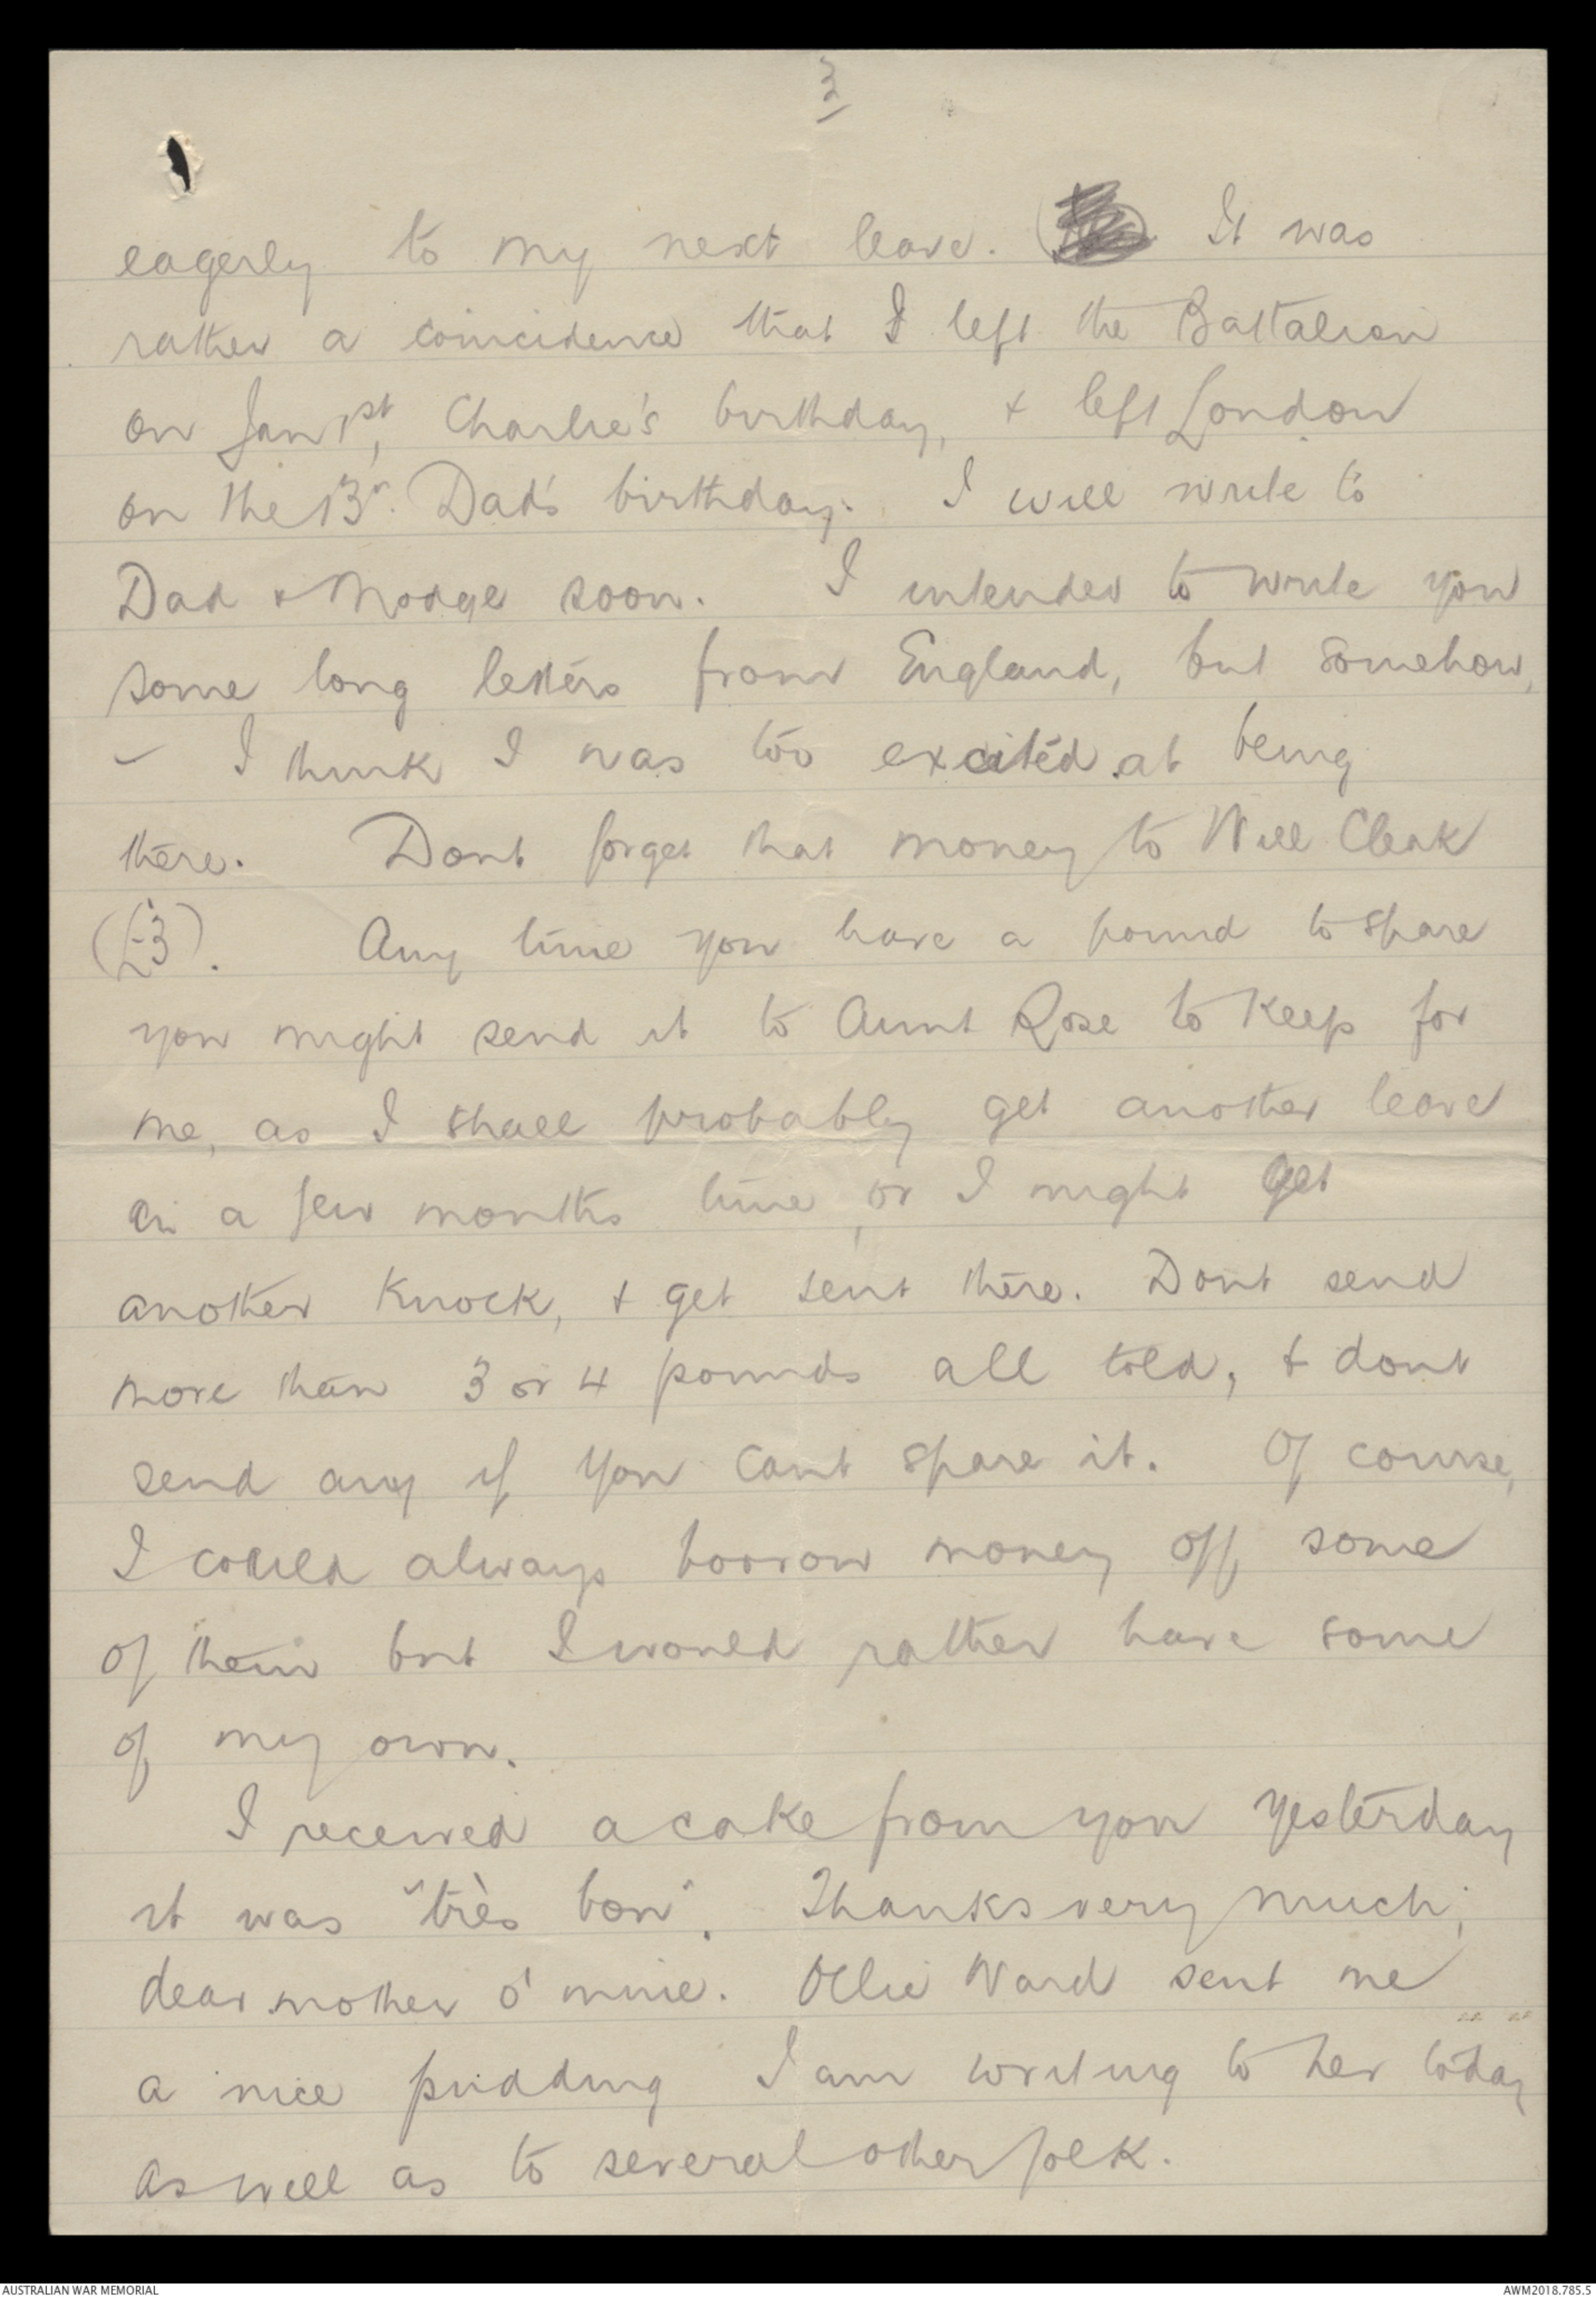 3
eagerly to my next leave. It was
rather a coincidence that I left the Battalion
on Jan 1st, Charlie's birthday, + left London
on the 13th. Dad's birthday. I will write to
Dad + Madge soon. I intended to write you
some long letters from England, but somehow,
- I think I was too excited at being
there. Dont forget that money to Will Cleak
(£3). Any time you have a pound to spare
you might send it to Aunt Rose to keep for
me, as I shall probably get another leave
in a few months time, or I might get
another knock, + get sent there. Dont send
more than 3 or 4 pounds all told, + dont
send any if you cant spare it. Of course,
I could always borrow money off some
of them but I would rather have some
of my own.
I received a cake from you yesterday
it was "très bon". Thanks very much,
dear mother o' mine. Ollie Ward sent me
a nice pudding I am writing to her today
as well as to several other folk.
AUSTRALIAN WAR MEMORIAL
AWM2018.785.5